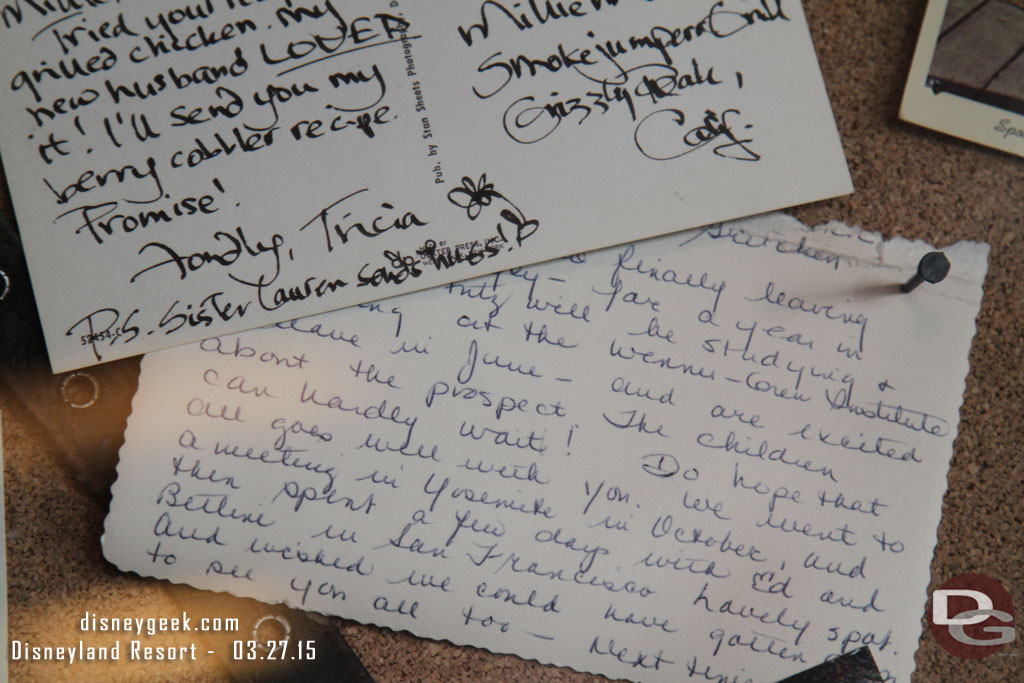 Tried your
grilled chicken. My
new husband LOVED
it! I'll send you my
berry cobbler recipe.
Promise!
Fondly, Tricia
P.S. Sister Lauren sends hugs!
52454-C
Pub. by Stan Sheets Photography
Smokejumpers Grill
Grizzly Peak,
Calif.
finally leaving
for a year in
will be studying &
at the Wenner-Gren Institute
leave in June – and are excited
about the prospect. The children
can hardly wait! Do hope that
all goes well with you. We went to
a meeting in Yosemite in October, and
then spent a few days with Ed and
in San Francisco lovely spot.
and wished we could have gotten
to see you all too – Next
disneygeek.com
Disneyland Resort - 03.27.15
DG